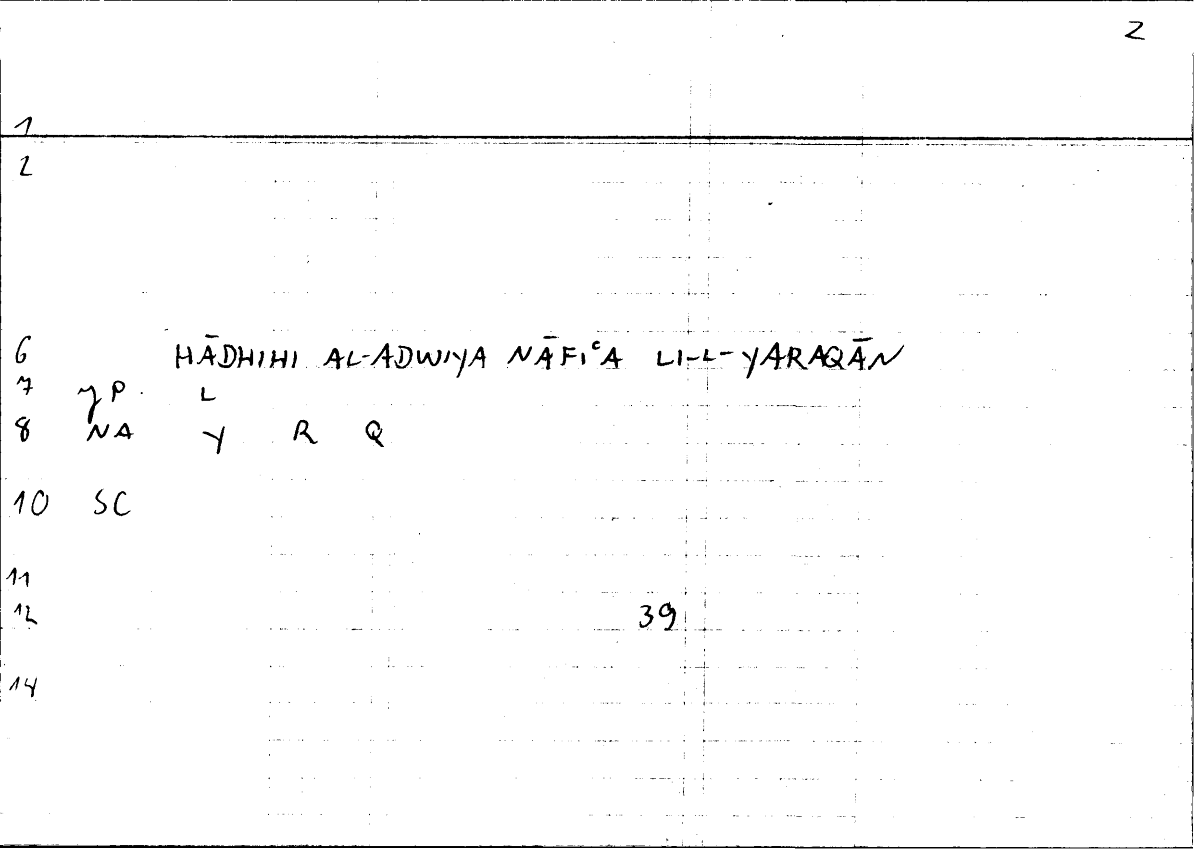 2
1
2
6 HĀDHIHI AL-ADWIYA NĀFIᶜA LI-L-YARAQĀN
7 yP. L
8 NA Y R Q
10 SC
11
12 39
14